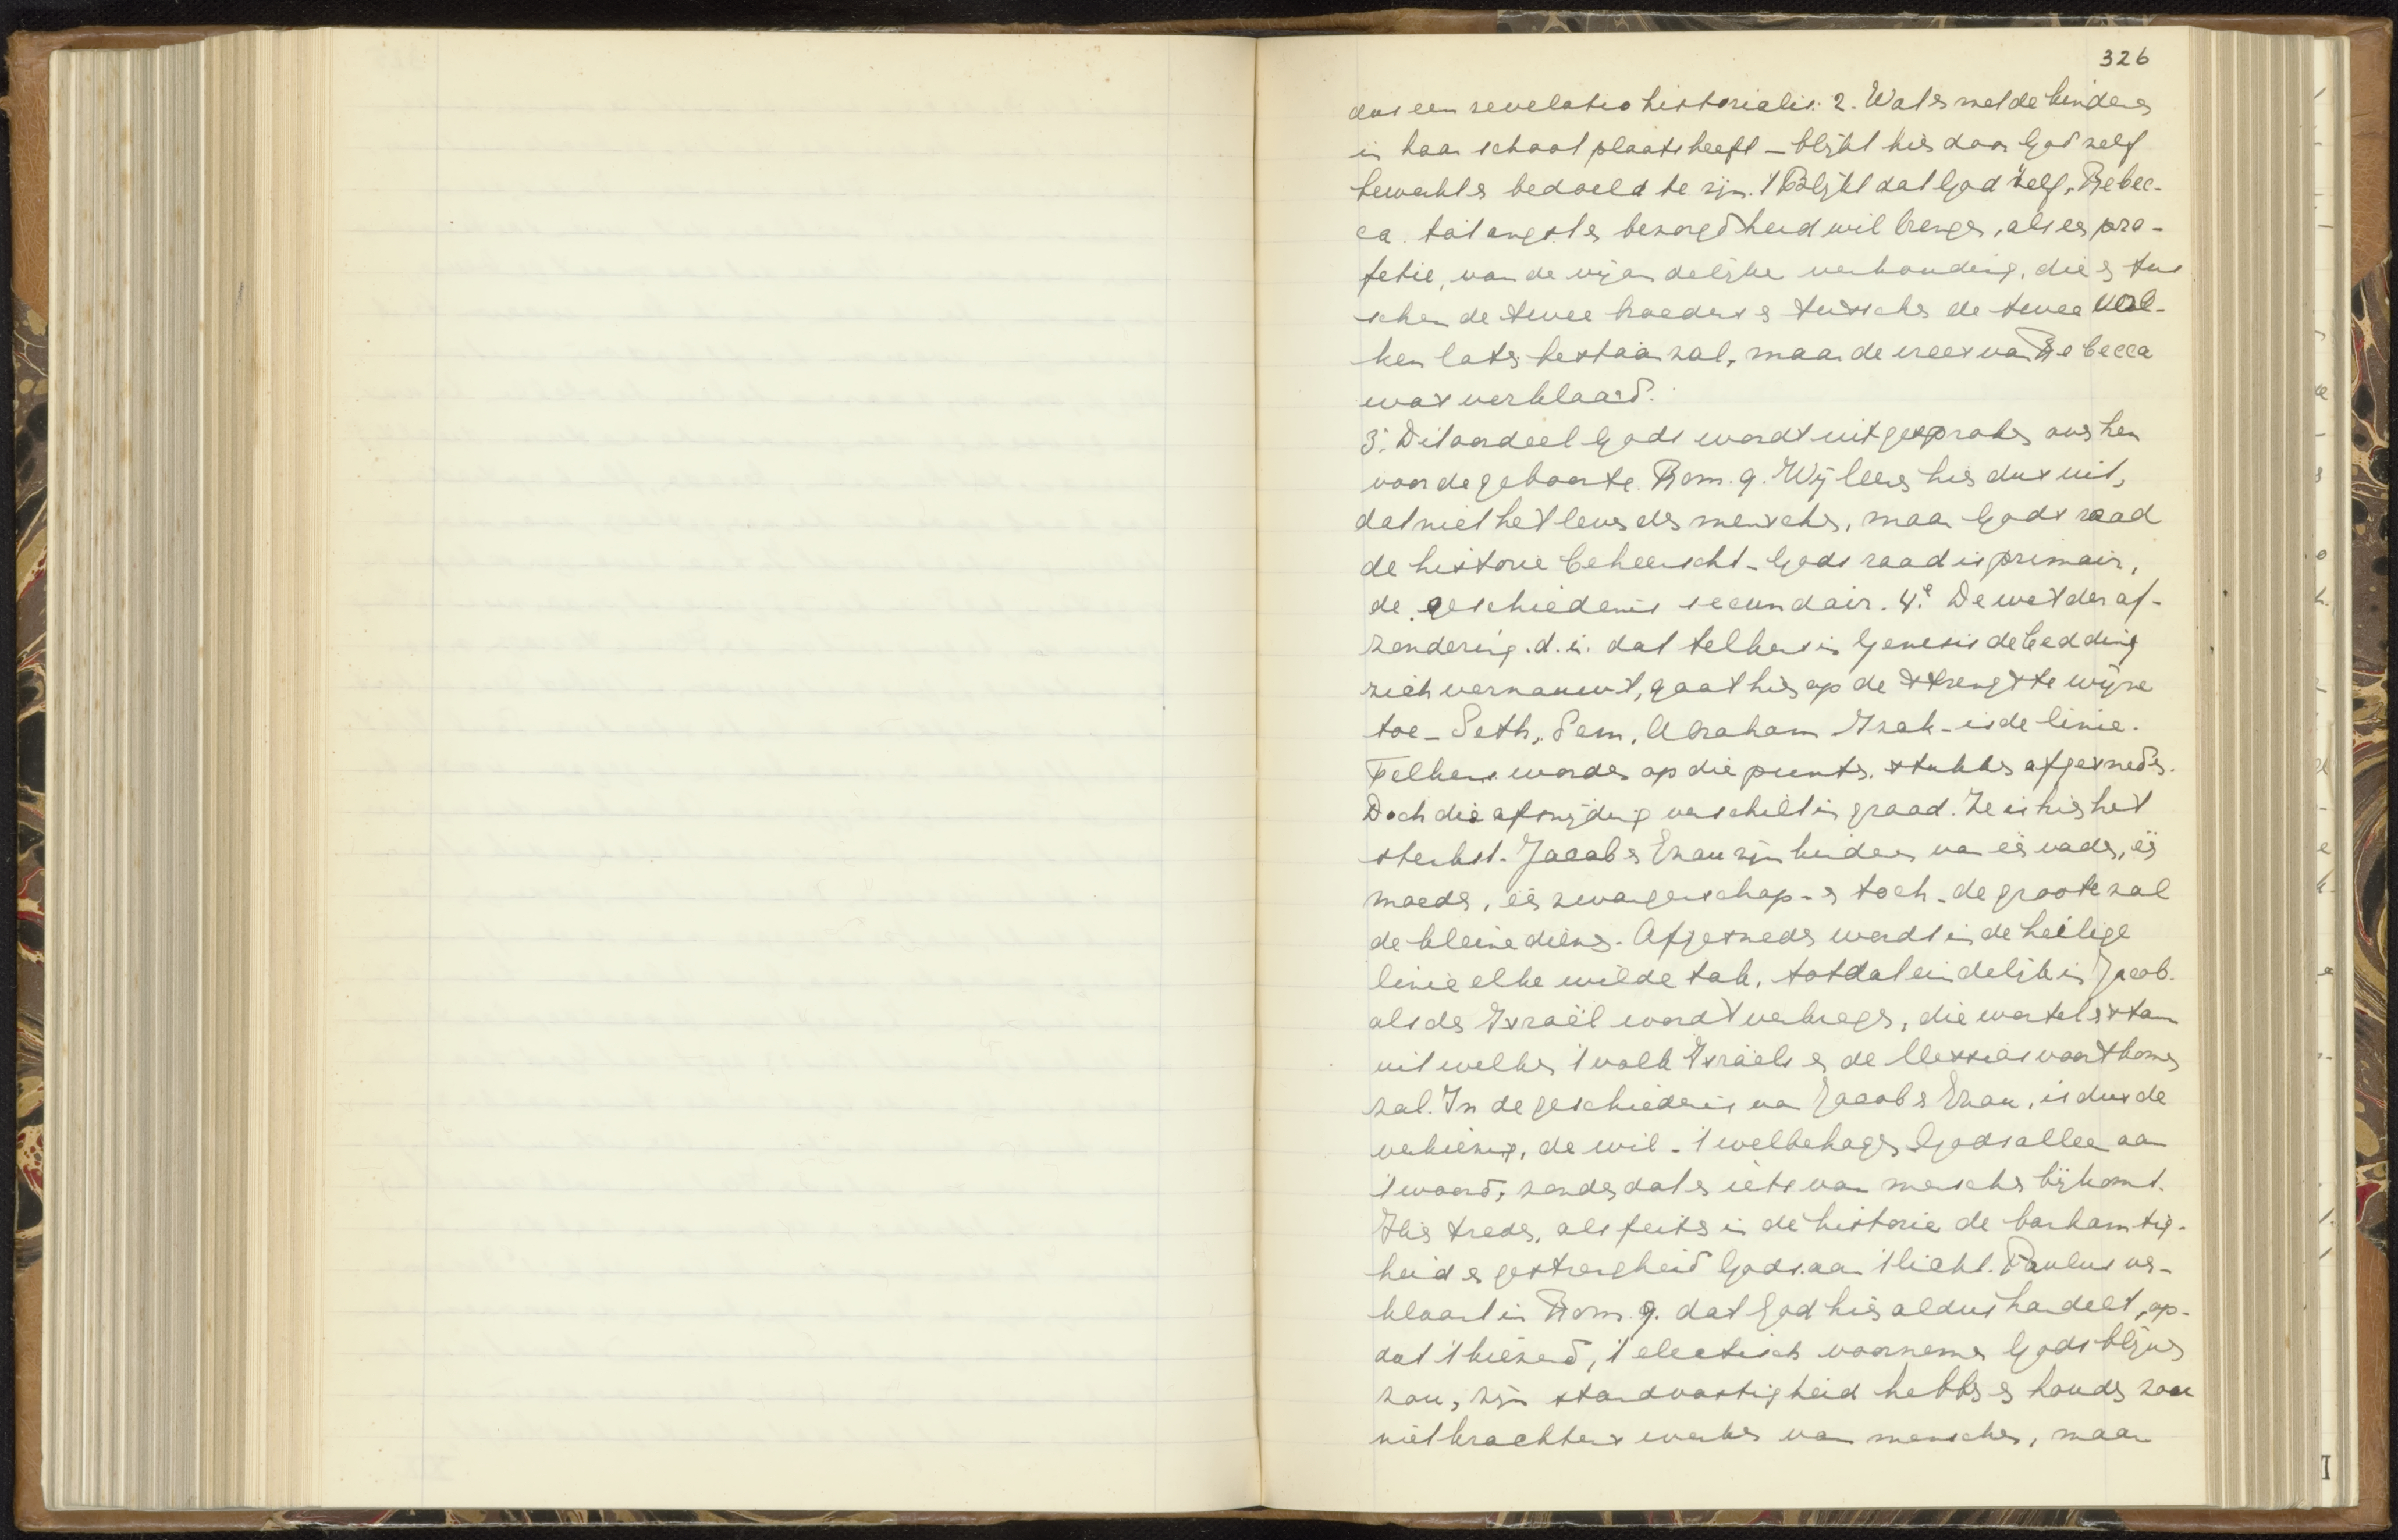 326
dus een revelatio historialis. 2. Wat er met de kinderen
in haar schoot plaats heeft – blijkt hier door God zelf
bewerkt en bedoeld te zijn. 't Blijkt dat God zelf, Rebec-
ca tot angst en bezorgdheid wil brengen, als een pro-
fetie, van de vijandelijke verhouding, die er tus
schen de twee broeders en tusschen de twee vol-
ken later bestaan zal, maar de vrees van Rebecca
was verklaard.
3. Dit oordeel Gods wordt uitgesproken over hen
voor de geboorte. Rom. 9. Wij leeren hier dus uit,
dat niet het leven des menschen, maar Gods raad
de historie beheerscht – Gods raad is primair,
de geschiedenis secundair. 4.e De wet der af-
zondering. d.i. dat telkens in Genesis de bedding
zich vernauwt, gaat hier op de strengste wijze
toe – Seth, Sem, Abraham Izak – is de linie.
Telkens worden op die punten stukken afgesneden.
Doch die afsnijding verschilt in graad. Ze is hier het
sterkst. Jacob en Ezau zijn kinderen van één vader, één
moeder, één zwangerschap – en toch – de groote zal
de kleine dienen. Afgesneden wordt in de heilige
linie elke wilde tak, totdat eindelijk in Jacob
als de Israël wordt verkregen, die wortel en stam
uit welken 't volk Israëls en de Messias voortkomen
zal. In de geschiedenis van Jacob en Ezau, is dus de
verkiezing, de wil – 't welbehagen Gods alleen aan
't woord, zonder dat er iets van menschen bijkomt.
Hier treden, als feiten in de historie de barhamtig-
heid en gestrengheid Gods aan 't licht. Paulus ver-
klaart in Rom. 9. dat God hier aldus handelt, op-
dat 't kiezend, 't electisch voornemen Gods blijven
zou, zijn standvastigheid hebben en houden zou
niet krachtens werken van menschen, maar